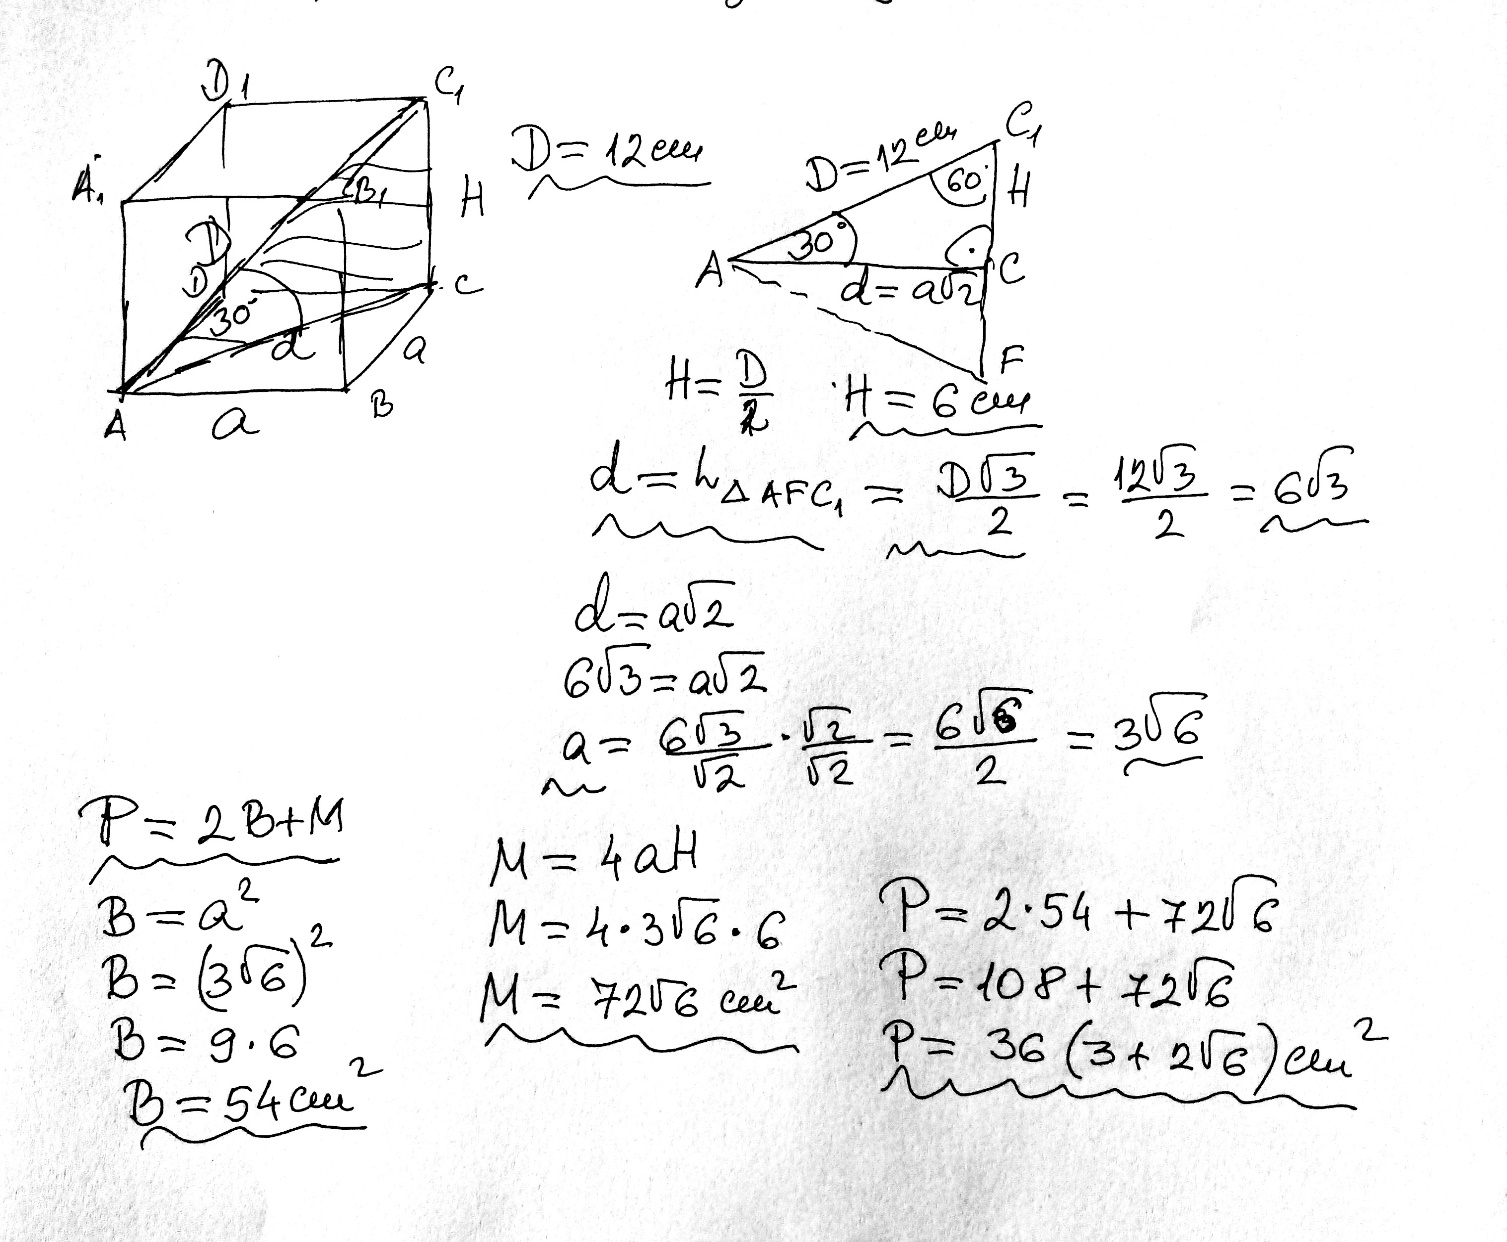 D1 C1
A1 B1 H
D = 12 cm
D
D C
30°
d a
A a B
D = 12 cm C1
60° H
30°
A C
d = a√2
F
H = D/2 H = 6 cm
d = h△AFC1 = D√3/2 = 12√3/2 = 6√3
d = a√2
6√3 = a√2
a = 6√3/√2 · √2/√2 = 6√6/2 = 3√6
P = 2B + M
B = a²
B = (3√6)²
B = 9 · 6
B = 54 cm²
M = 4aH
M = 4 · 3√6 · 6
M = 72√6 cm²
P = 2 · 54 + 72√6
P = 108 + 72√6
P = 36 (3 + 2√6) cm²